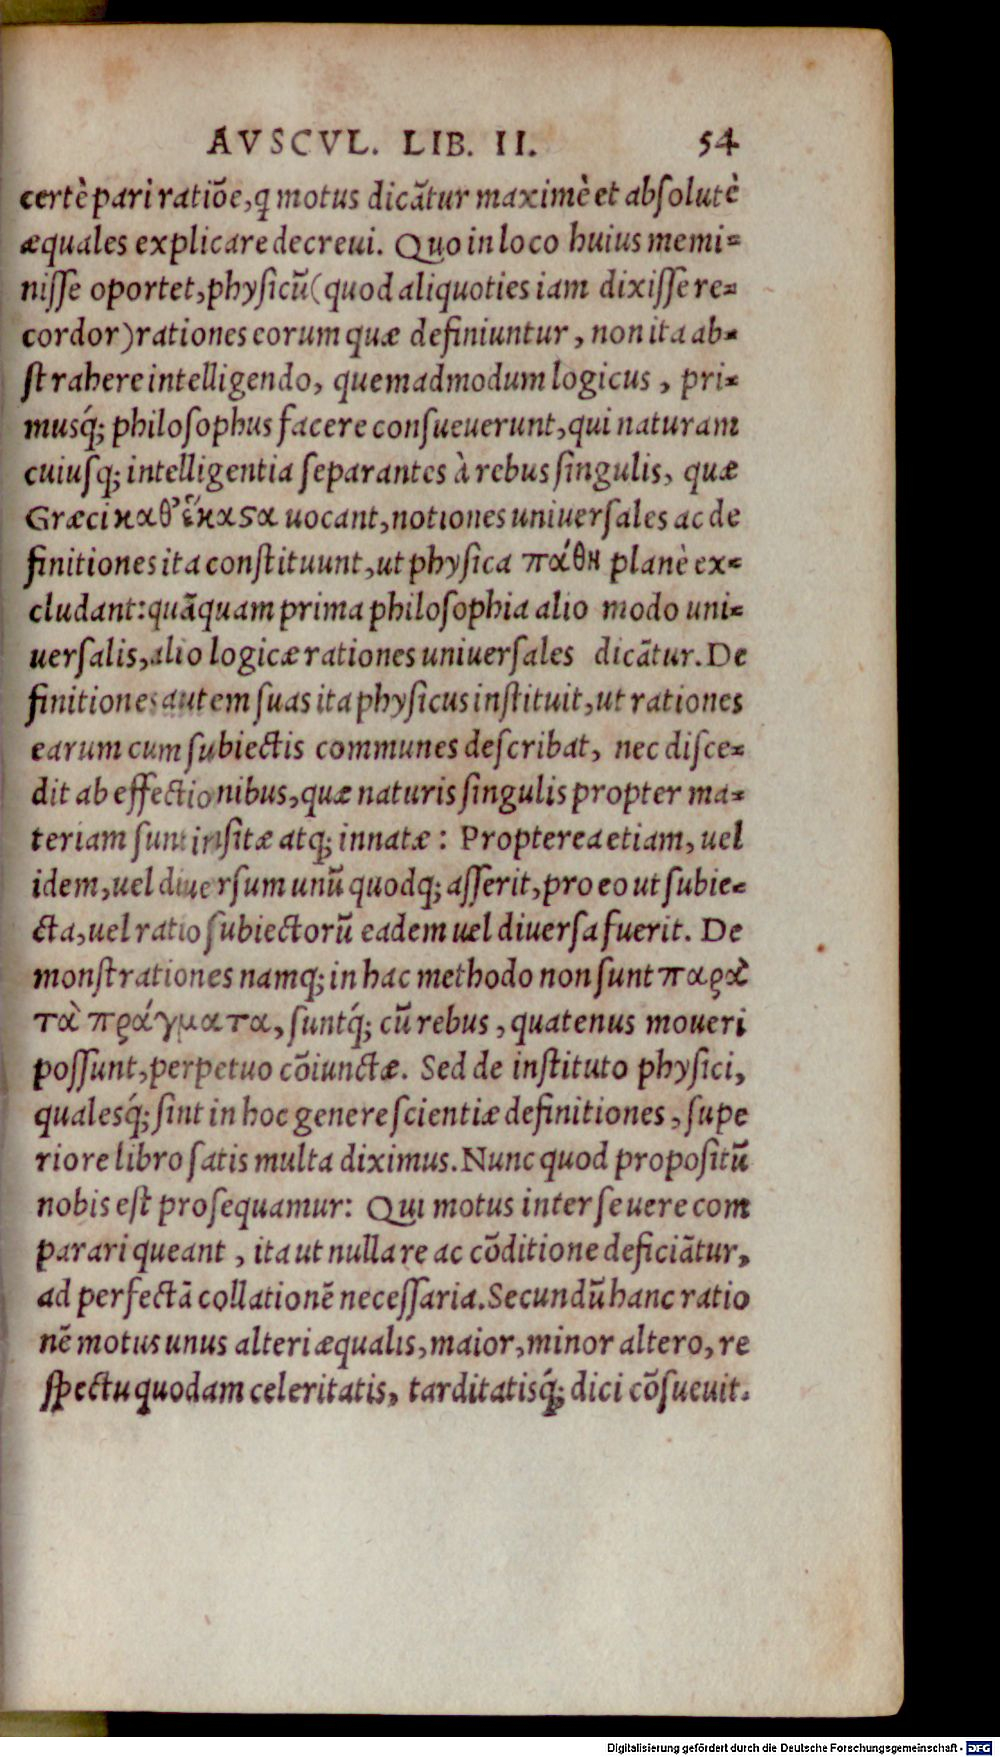 AVSCVL. LIB. II. 54
certè pari ratiõe, q motus dicãtur maximè et absolutè
æquales explicare decreui. Quo in loco huius memi=
nisse oportet, physicũ (quod aliquoties iam dixisse re=
cordor) rationes eorum quæ definiuntur, non ita ab=
strahere intelligendo, quemadmodum logicus, pri=
musq́; philosophus facere consueuerunt, qui naturam
cuiusq; intelligentia separantes à rebus singulis, quæ
Græci καθ’ ἕκαϛα uocant, notiones uniuersales ac de
finitiones ita constituunt, ut physica πάθη planè ex=
cludant: quãquam prima philosophia alio modo uni=
uersalis, alio logicæ rationes uniuersales dicãtur. De
finitiones autem suas ita physicus instituit, ut rationes
earum cum subiectis communes describat, nec disce=
dit ab effectionibus, quæ naturis singulis propter ma=
teriam sunt insitæ atq; innatæ: Propterea etiam, uel
idem, uel diuersum unũ quodq; asserit, pro eo ut subie=
cta, uel ratio subiectorũ eadem uel diuersa fuerit. De
monstrationes namq; in hac methodo non sunt παρὰ
τὰ πράγματα, suntq́; cũ rebus, quatenus moueri
possunt, perpetuo cõiunctæ. Sed de instituto physici,
qualesq́; sint in hoc genere scientiæ definitiones, supe
riore libro satis multa diximus. Nunc quod propositũ
nobis est prosequamur: Qui motus inter se uere com
parari queant, ita ut nulla re ac cõditione deficiãtur,
ad perfectã collationẽ necessaria. Secundũ hanc ratio
nẽ motus unus alteri æqualis, maior, minor altero, re
spectu quodam celeritatis, tarditatisq́; dici cõsueuit.
Digitalisierung gefördert durch die Deutsche Forschungsgemeinschaft - DFG